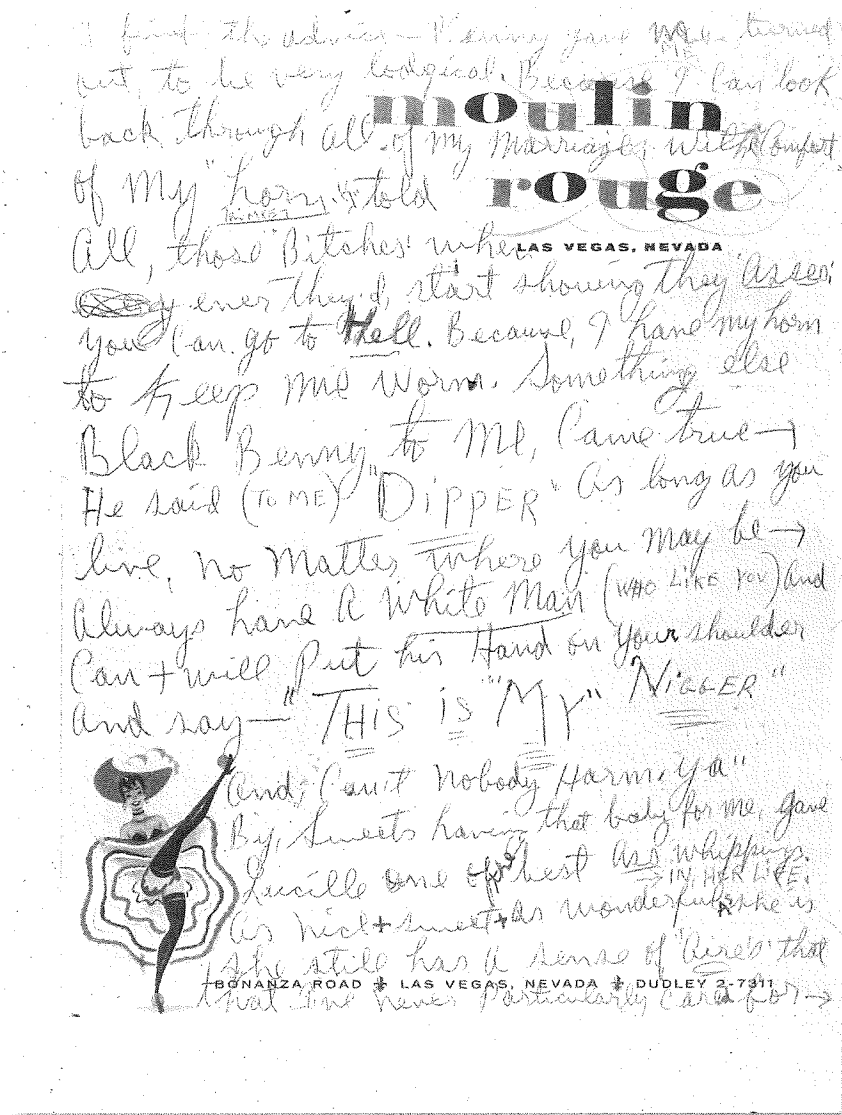 I find the advice – Benny gave me. turned
out, to be very lodgical. Because I Can look
moulin
back through all. of my Marriages, with the Comfort
of My "horn." I told
TRUMPET
rouge
All, those "Bitches" when
LAS VEGAS, NEVADA
ever they'd, start showing they "Asses,"
you Can. go to Hell. Because, I have my horn
to Keep me Worm. Something else
Black Benny, to Me, Came true→
He said (TO ME) "DIPPER" As long as you
live, no Matter where you may be→
Always have A White Man (WHO LIKE YOU) and
Can + will Put his Hand on your shoulder
And say— "THIS is "My" NIGGER"
And, Can't Nobody Harm. Ya"
By, Sweets having that baby for me, gave
Lucille one of the best Ass whippings.
→ IN HER LIFE.
As nice + sweet + as wonderful she is
she still has a sense of "Aires" that
BONANZA ROAD LAS VEGAS, NEVADA DUDLEY 2-7311
that I've never Particularly Card for→